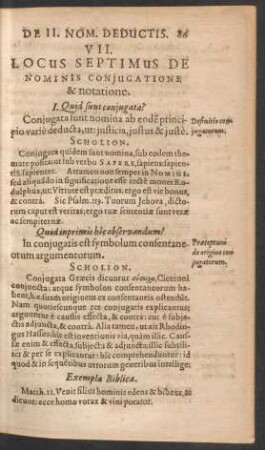 DE II. NOM. DEDUCTIS. 86
VII.
LOCUS SEPTIMUS DE
NOMINIS CONJUGATIONE
& notatione.
I. Quid sunt conjugata?
Conjugata sunt nomina ab eodē princi-
pio variè deducta, ut: justicia, justus & justè.
Definitio con-
jugatorum.
SCHOLION.
Conjugata quidem sunt nomina, sub eodem the-
mate posita: ut sub verbo SAPERE, sapiens: sapien-
tis, sapienter. Attamen non semper in NOMINE,
sed aliquando in significatione esse rectè monet Ro-
dulphus, ut: Virtute est præditus, ergo est vir bonus,
& contrà. Sic Psalm. 119. Tuorum Jehova, dicto-
rum caput est veritas, ergo tuæ sententiæ sunt veræ
ac sempiternæ.
Quid inprimis hic observandum?
In conjugatis est symbolum consentane-
otum argumentorum.
Præceptum
de origine con-
jugatorum.
SCHOLION.
Conjugata Græcis dicuntur Ciceroni
conjuncta: atque symbolon consentaneorum ha-
bent, h. e. suam originem ex consentaneis ostendūt.
Nam quotiescunque rationes conjugatæ explicantur;
arguuntur è caussis effecta, & contrà: aut è subje-
ctis adjuncta, & contrà. Alia tamen, ut ait Rhodin-
gus Hassenbis est inventionis via, quàm illic. Caussæ
enim & effecta, subjecta & adjuncta, illic substili-
ter & per se explicantur: hîc comprehenduntur: id
quod & in sequentibus ortorum generibus intellige:
Exempla Biblica.
Matth. 11. Venit filius hominis edens & bibens, &
dicunt: ecce homo vorax & vini potator.